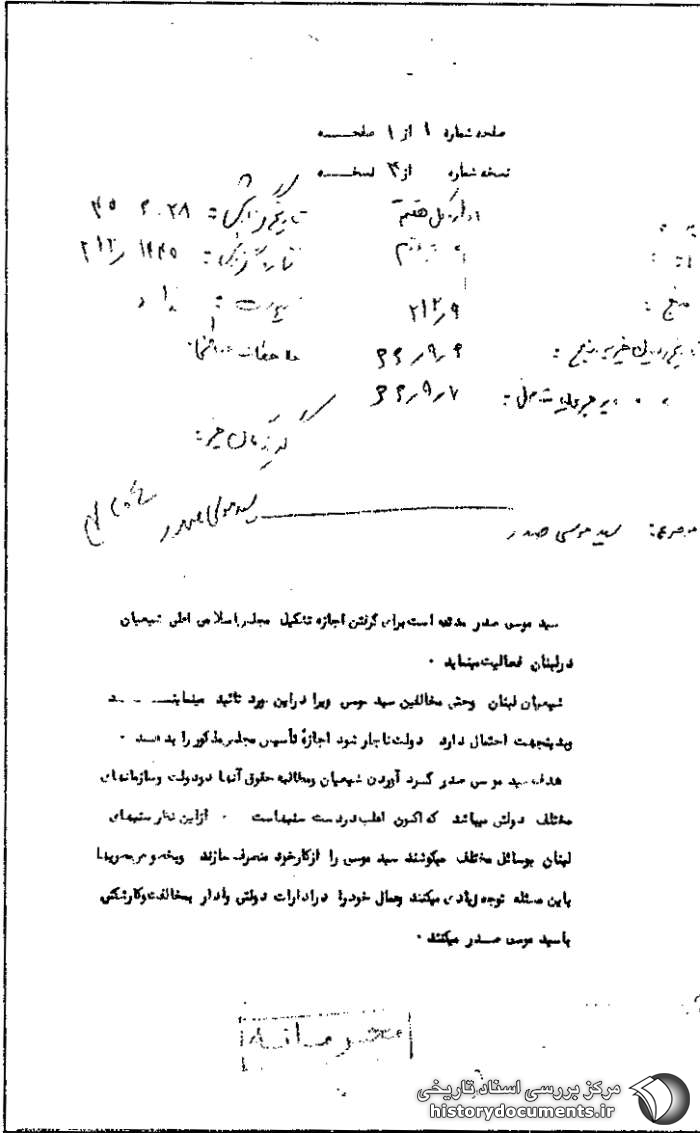 صفحه شماره ۱ از ۱ صفحــــه
نسخه شماره از ۳ نسخــــه
اداره کل هفتم
تاریخ گزارش : ۲۸
شماره گزارش :
منبع : ۲۱۲/۹
۴۶/۹/۶
۴۶/۹/۷
گیرندگان خبر :
موضوع : سید موسی صدر
سید موسی صدر
سید موسی صدر مدتی است برای گرفتن اجازه تشکیل مجلس اسلامی اعلی شیعیان
در لبنان فعالیت مینماید .
شیعیان لبنان وحتی مخالفین سید موسی ویرا در این مورد تائید مینماینــــد
وبدینجهت احتمال دارد دولت ناچار شود اجازهٔ تأسیس مجلس مذکور را بدهــد .
هدف سید موسی صدر گرد آوردن شیعیان ومطالبه حقوق آنها دردولت وسازمانهای
مختلف دولتی میباشد که اکنون اغلب دردست سنیهاست . ازاین نظر سنیهای
لبنان بوسائل مختلف میکوشند سید موسی را ازکارخود منصرف سازند وبخصوص مصریها
باین مسئله توجه زیادی میکنند وعمال خودرا درادارات دولتی وادار بمخالفت وکارشکنی
با سید موسی صــدر میکنند .
محرمـانـه
مرکز بررسی اسناد تاریخی
historydocuments.ir